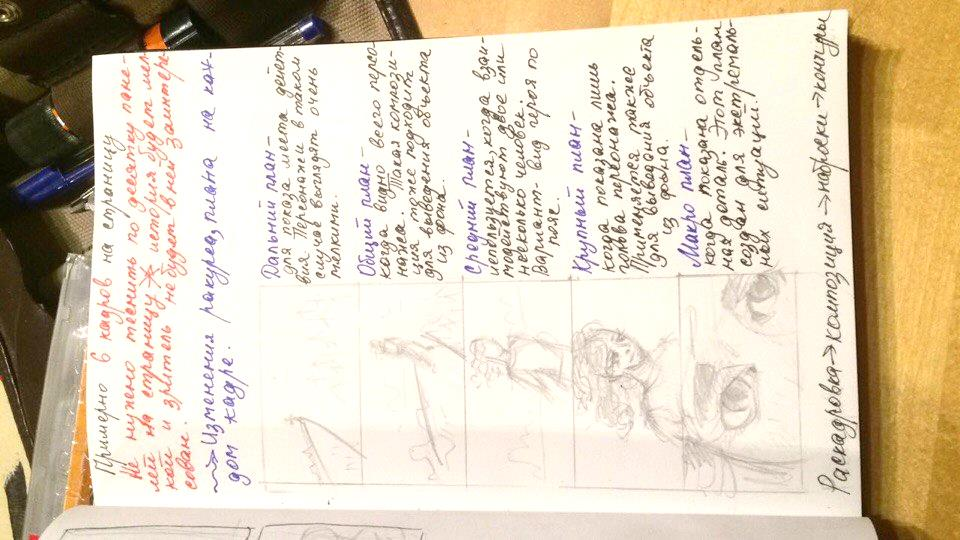 Примерно 6 кадров на страницу
Не нужно теснить по десятку пане-
лей на страницу, история будет мел-
кой и зритель не будет в ней заинтере-
сован.
Изменения ракурса, плана на каж-
дом кадре.
Дальний план -
для показа места дейст-
вия. Персонажи в таком
случае выглядят очень
мелкими.
Общий план -
когда видно всего персо-
нажа. Такая компози-
ция тоже подходит
для выведения объекта
из фона.
Средний план -
используется, когда взаи-
модействуют двое или
несколько человек.
Вариант - вид героя по
пояс.
Крупный план -
когда показана лишь
голова персонажа.
Применяется также
для выведения объекта
из фона.
Макро план -
когда показана отдель-
ная деталь. Этот план
создан для экстремаль-
ных ситуаций.
Раскадровка→композиция→наброски→контуры